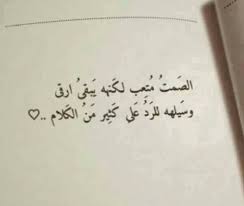 الصَمتُ مُتعِب لكَنهه يَبقىُ ارقى
وسَيلهه للرَدُ عَلي كَثير مَنُ الكَلام ..♡